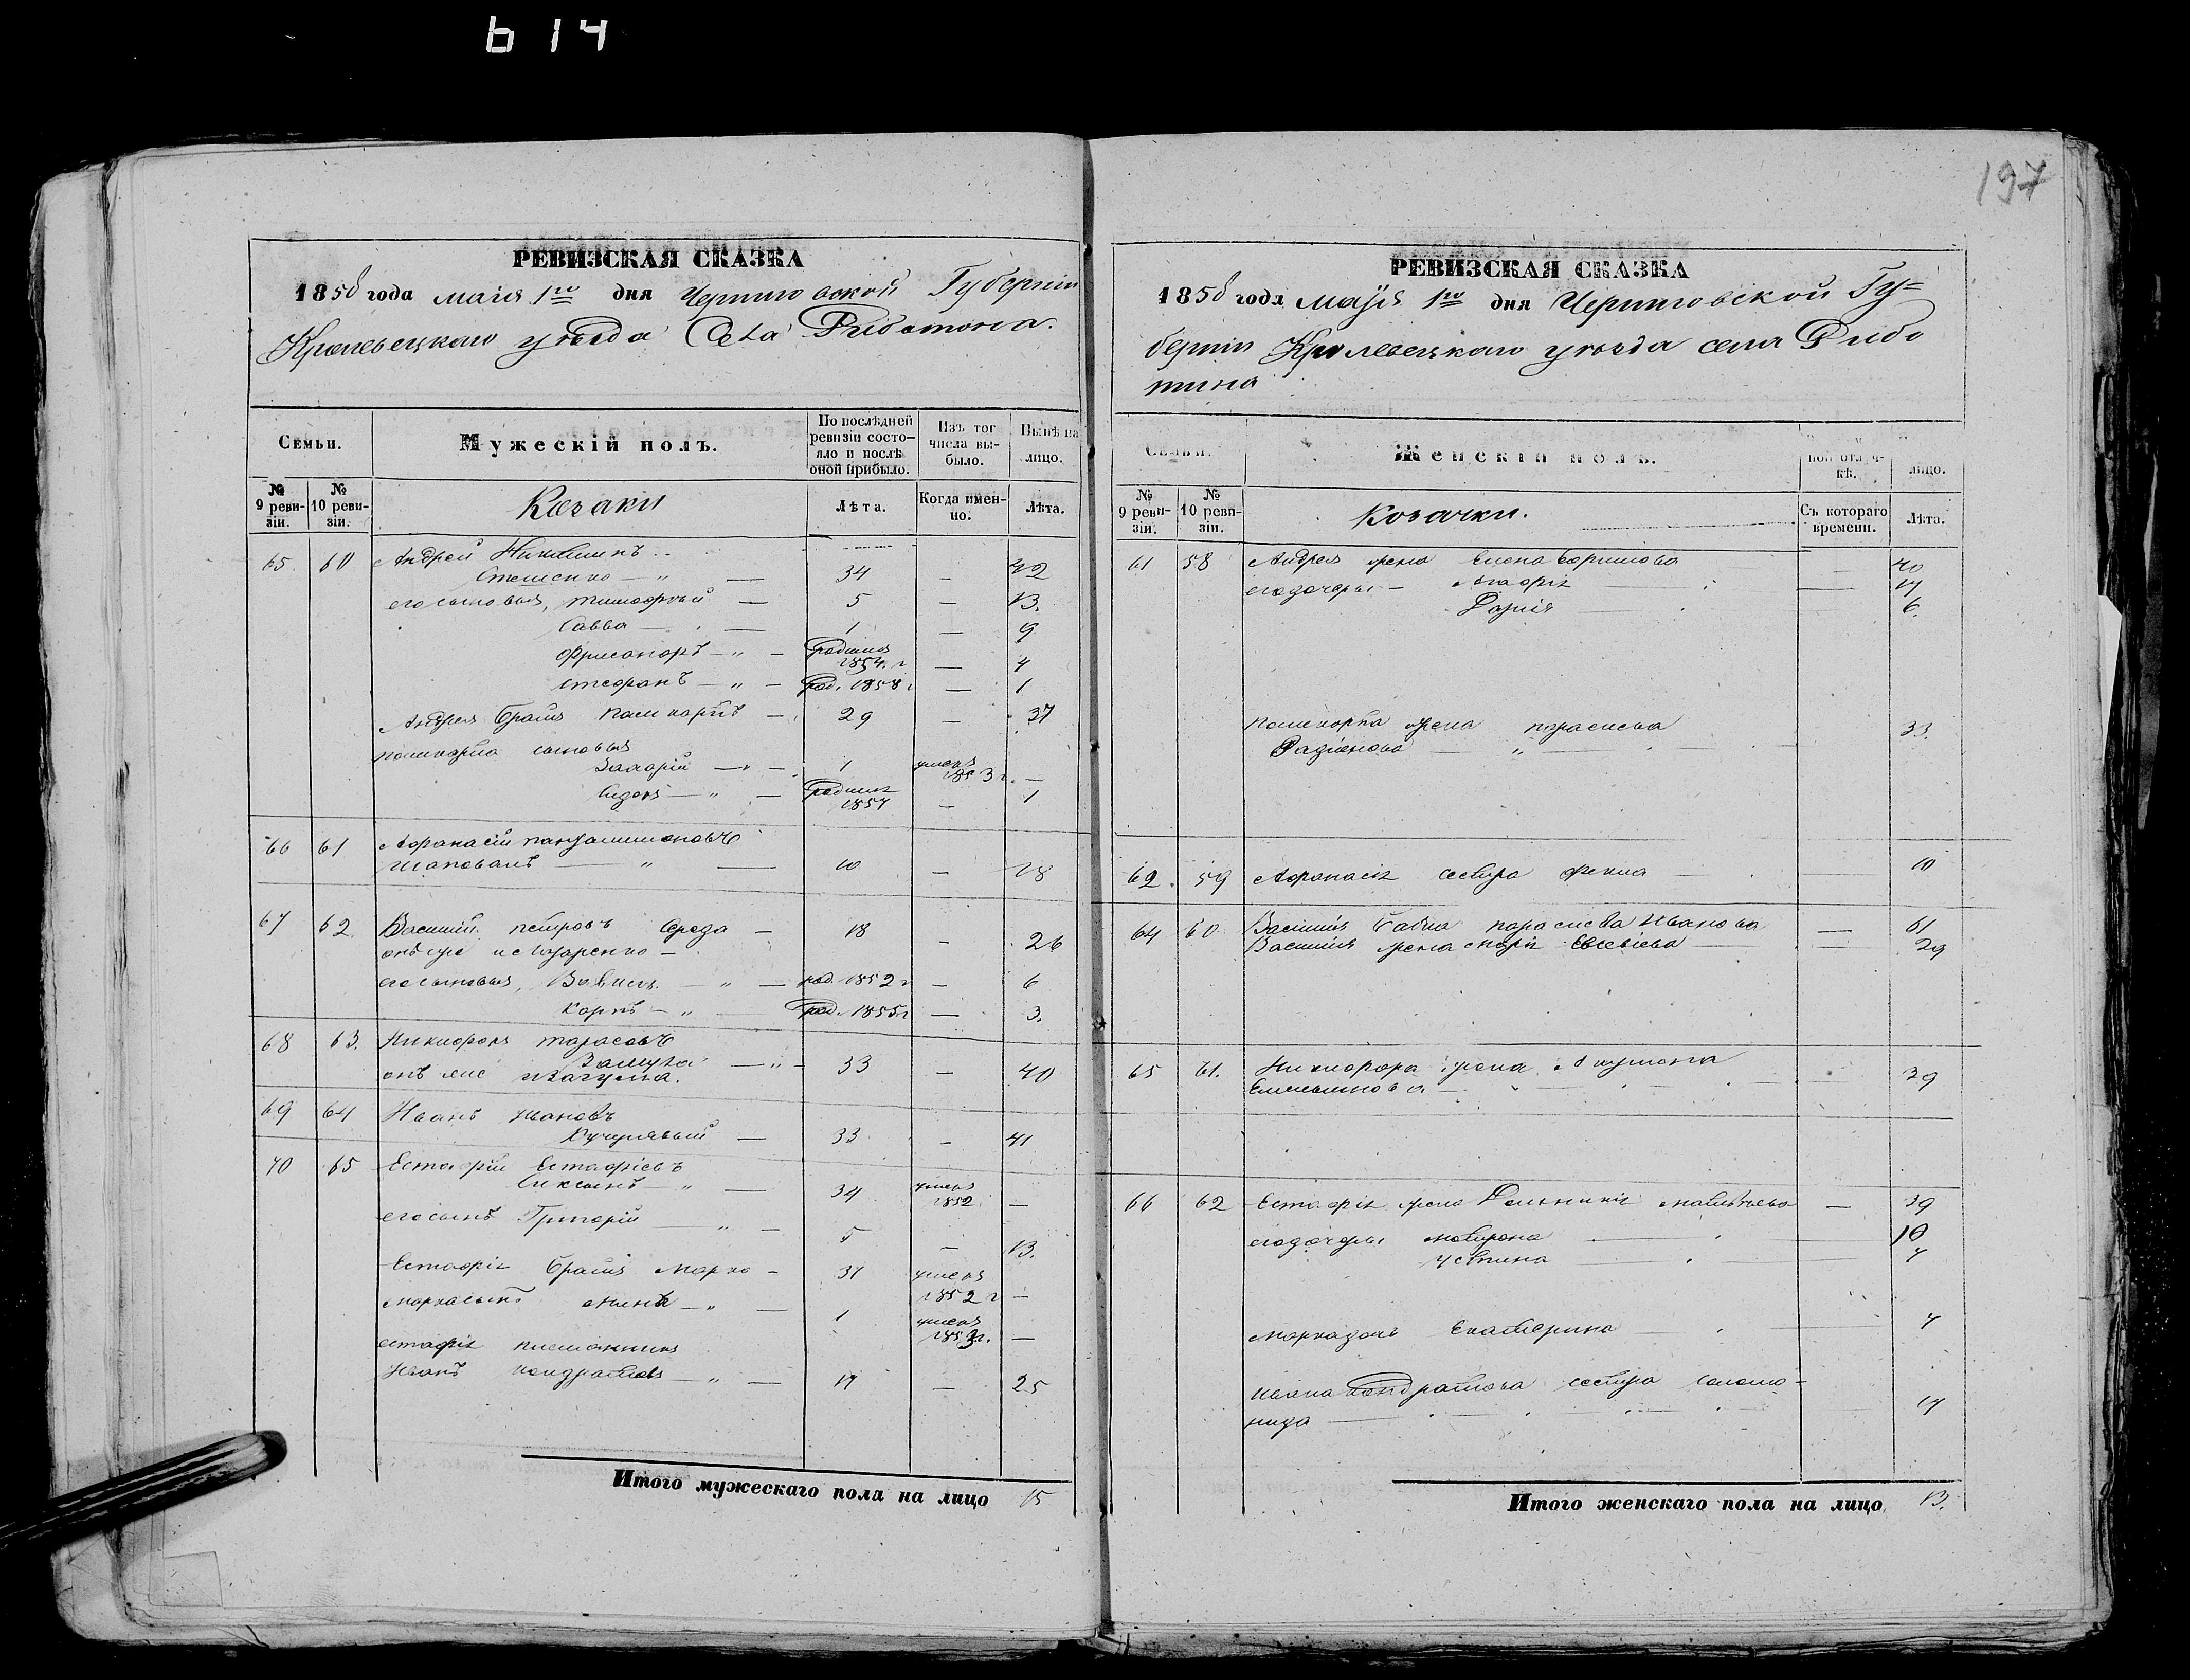 614
197
РЕВИЗСКАЯ СКАЗКА
1858 года маія 1го дня Черниговской Губерніи
Кролевецкаго уѣзда Села Риботина.
Семьи.
Мужескій полъ.
По послѣдней ревизіи состо-
яло и послѣ оной прибыло.
Изъ тог числа вы-
было.
Нынѣ на лицо.
№ 9 реви-
зіи.
№ 10 реви-
зіи.
Козаки
Лѣта.
Когда имен-
но.
Лѣта.
65 60 Андрей
Стеценко — „ — 34 — 42
его сыновья, Тимофѣй — 5 — 13.
Савва — 1 — 9
родился 1854. г — 4
Стефанъ — „ — род. 1858 г — 1
Андрея братъ Поликарпъ — 29 — 37
Поликарпа сыновья
Захарій — „ — 1 умеръ 1853 г. —
Сидоръ — „ — родился 1857 — 1
66 61 Афанасій
Шаповалъ — „ — 10 — 18
67 62 Василій Петровъ Середа — 18 — 26
онъ же
его сыновья, — „ — род. 1852 г — 6
Карпъ — „ — род. 1855 г — 3.
68 63. Никифоръ Тарасовъ
— „ — 33 — 40
онъ же
69 64 Иванъ Ивановъ
Кучерявый — 33 — 41
70 65 Естафій Естафіевъ
— „ — 34 умеръ 1852 —
его сынъ Григорій — „ — 5 — 13.
Естафія братъ Марко — 31 умеръ 1852 г —
Марка сынъ — „ — 1 умеръ 1853 г. —
Естафія племянникъ
Иванъ Кондратовъ — „ — 17 — 25
Итого мужескаго пола на лицо 15
РЕВИЗСКАЯ СКАЗКА
1858 года маія 1го дня Черниговской Гу=
берніи Кролевецкаго уѣзда села Рибо
тина
Семьи.
Женскій полъ.
лицо.
№ 9 реви-
зіи.
№ 10 реви-
зіи.
Козачки.
Съ котораго времени.
Лѣта.
61 58 Андрея жена Елена — 40
его дочери — Агафія — 17
Дарія — 6.
Поликарпа жена Параскева
Радіонова — „ — 33.
62. 59 Афанасія сестра — 10
64 60 Василія бабка Параскева Иванова — 61
Василія жена Марія — 29
65 61. Никифора жена
Емельянова — 39
66 62 Естафія жена — 39
его дочери — 10
Устина — 7
Марка дочь Екатерина — 7
Ивана Кондратова сестра Соломо-
нида — 17
Итого женскаго пола на лицо 13.